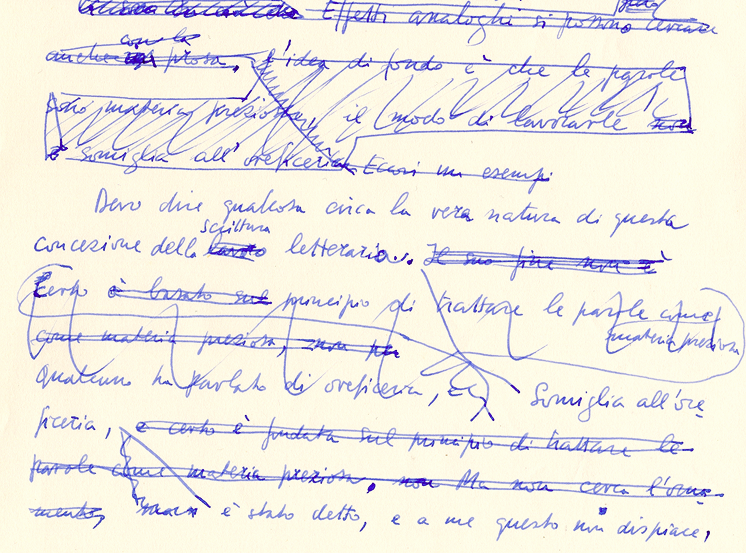 Effetti analoghi si possono cercare
con la
anche prosa. L'idea di fondo è che le parole
sono materia preziosa, il modo di lavorarle non
è somiglia all'oreficeria Eccovi un esempi
Devo dire qualcosa circa la vera natura di questa
scrittura
concezione della lavoro letteraria. Il suo fine non è
Certo è basato sul principio di trattare le parole come
materia preziosa
come materia preziosa, non per
Qualcuno ha parlato di oreficeria, Somiglia all'ore
ficeria, e certo è fondata sul principio di trattare le
parole come materia preziosa, non Ma non cerca l'orna
mento, è stato detto, e a me questo non dispiace,